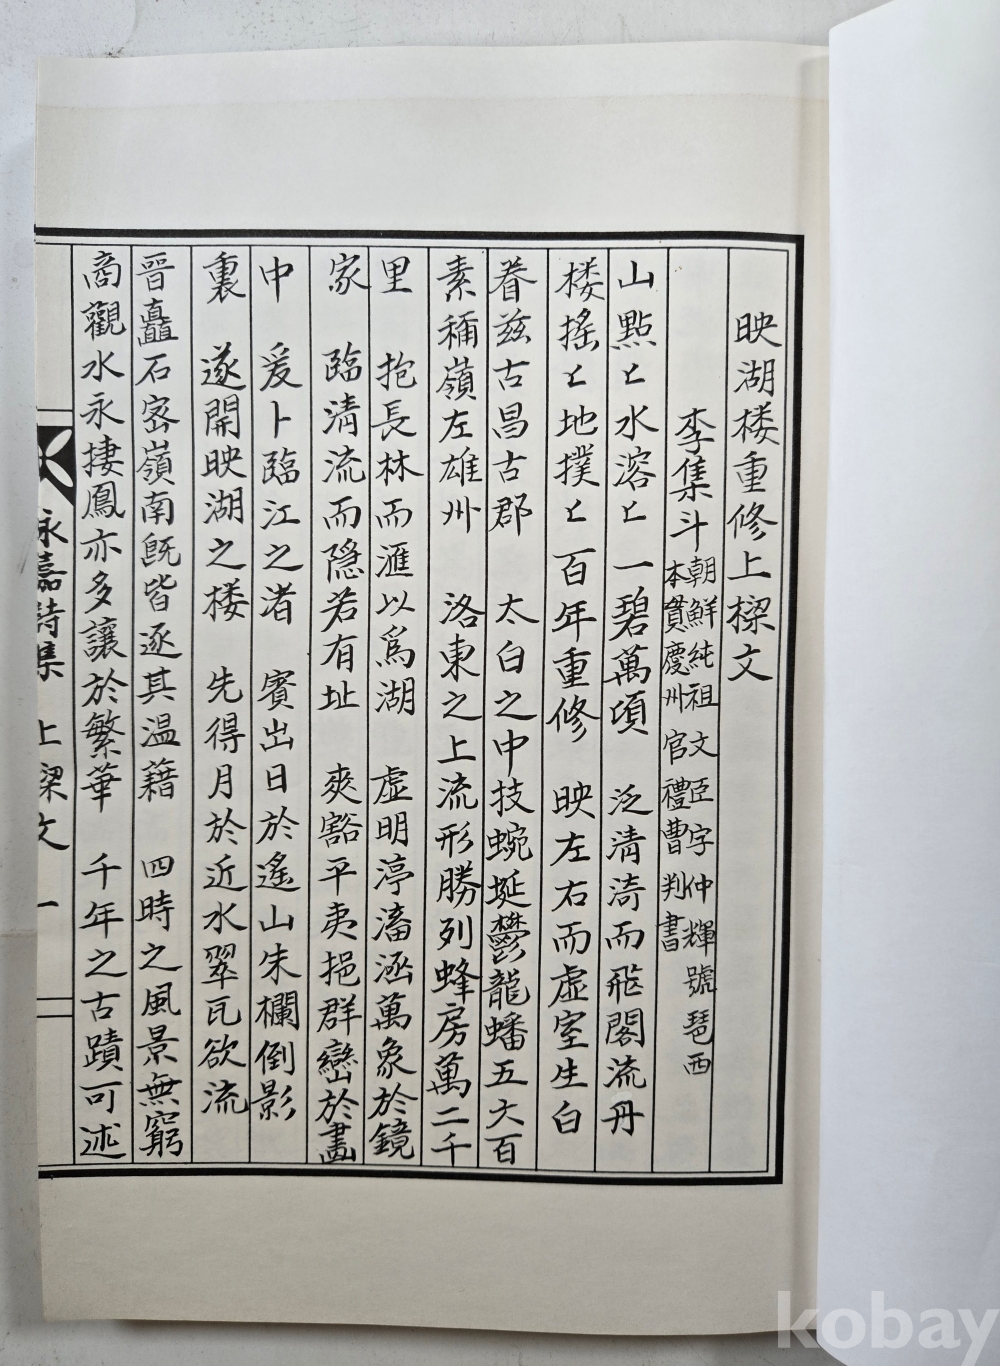 映湖楼重修上樑文
李集斗 朝鮮純祖文臣字仲輝號琶西
本貫慶州官禮曹判書
山點〻水溶〻一碧萬頃 泛清漪而飛閣流丹
楼搖〻地撲〻百年重修 映左右而虛室生白
眷茲古昌古郡 太白之中技蜿蜒鬱龍蟠五六百
素稱嶺左雄州 洛東之上流形勝列蜂房萬二千
里 抱長林而滙以爲湖 虛明渟滀涵萬象於鏡
家 臨清流而隠若有址 爽豁平夷挹群巒於畵
中 爰卜臨江之渚 賓出日於遙山朱欄倒影
裏 遂開映湖之楼 先得月於近水翠瓦欲流
晋矗石密嶺南旣皆逐其温籍 四時之風景無窮
商觀水永捿鳳亦多讓於繁華 千年之古蹟可述
永嘉詩集 上樑文 一
kobay